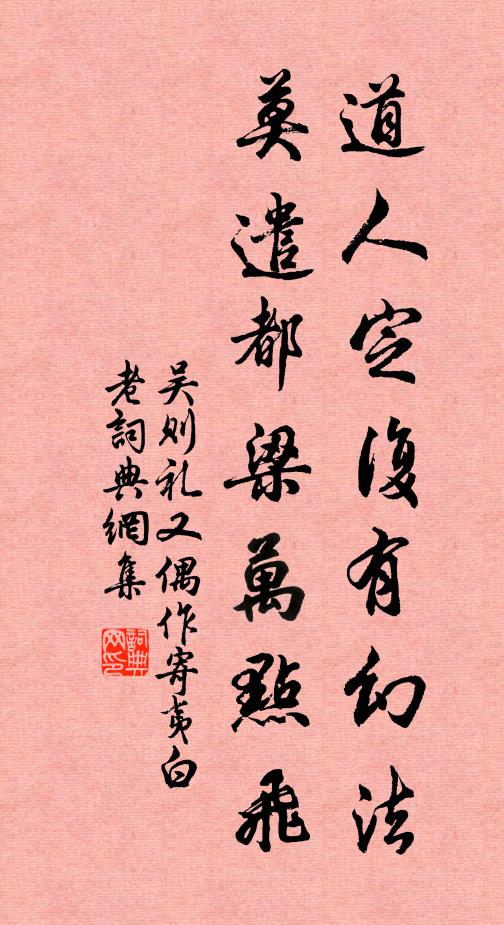 道人定復有幻法
莫遣都梁萬點飛
吴则礼又偶作寄夷白
老詞典網集
詞典網印